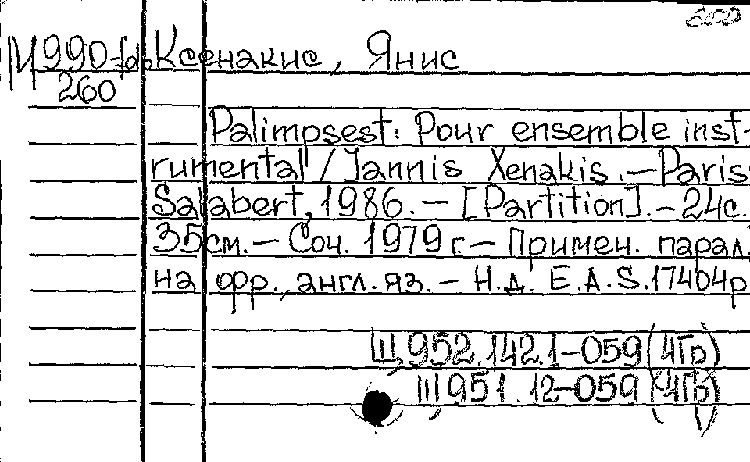 200
М990-ф Ксенакис, Янис
260
Palimpsest: Pour ensemble inst-
rumental / Jannis Xenakis. – Paris:
Salabert, 1986. – [Partition]. – 24с.
35см. – Соч. 1979 г. – Примеч. парал.
на фр., англ. яз. – Н.д. E.A.S.17404р
Щ952.142.1-059(4Гр)
Щ951.12-059(4Гр)